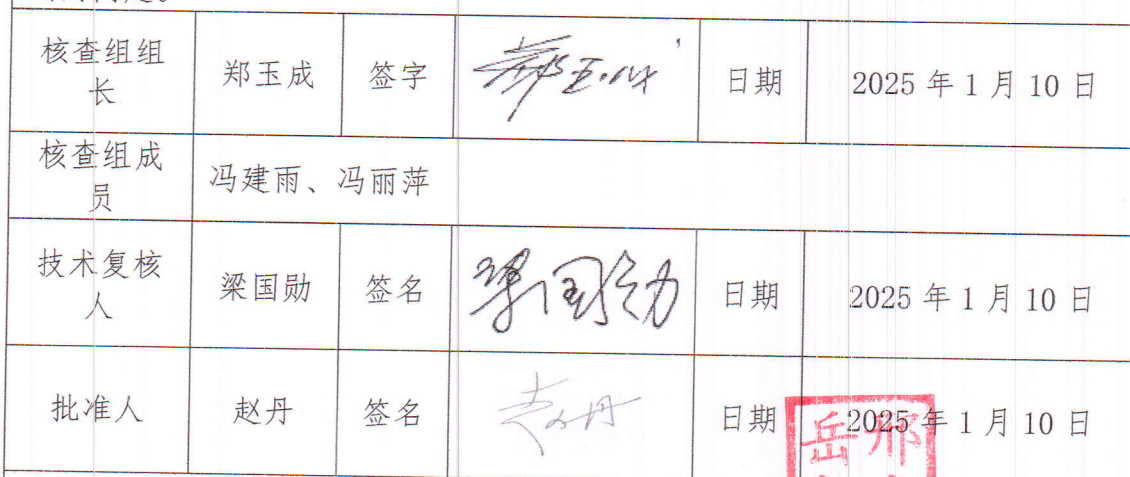 核查组组
长
郑玉成
签字
郑玉成
日期
2025 年 1 月 10 日
核查组成
员
冯建雨、冯丽萍
技术复核
人
梁国勋
签名
梁国勋
日期
2025 年 1 月 10 日
批准人
赵丹
签名
赵丹
日期
2025 年 1 月 10 日
岳邢